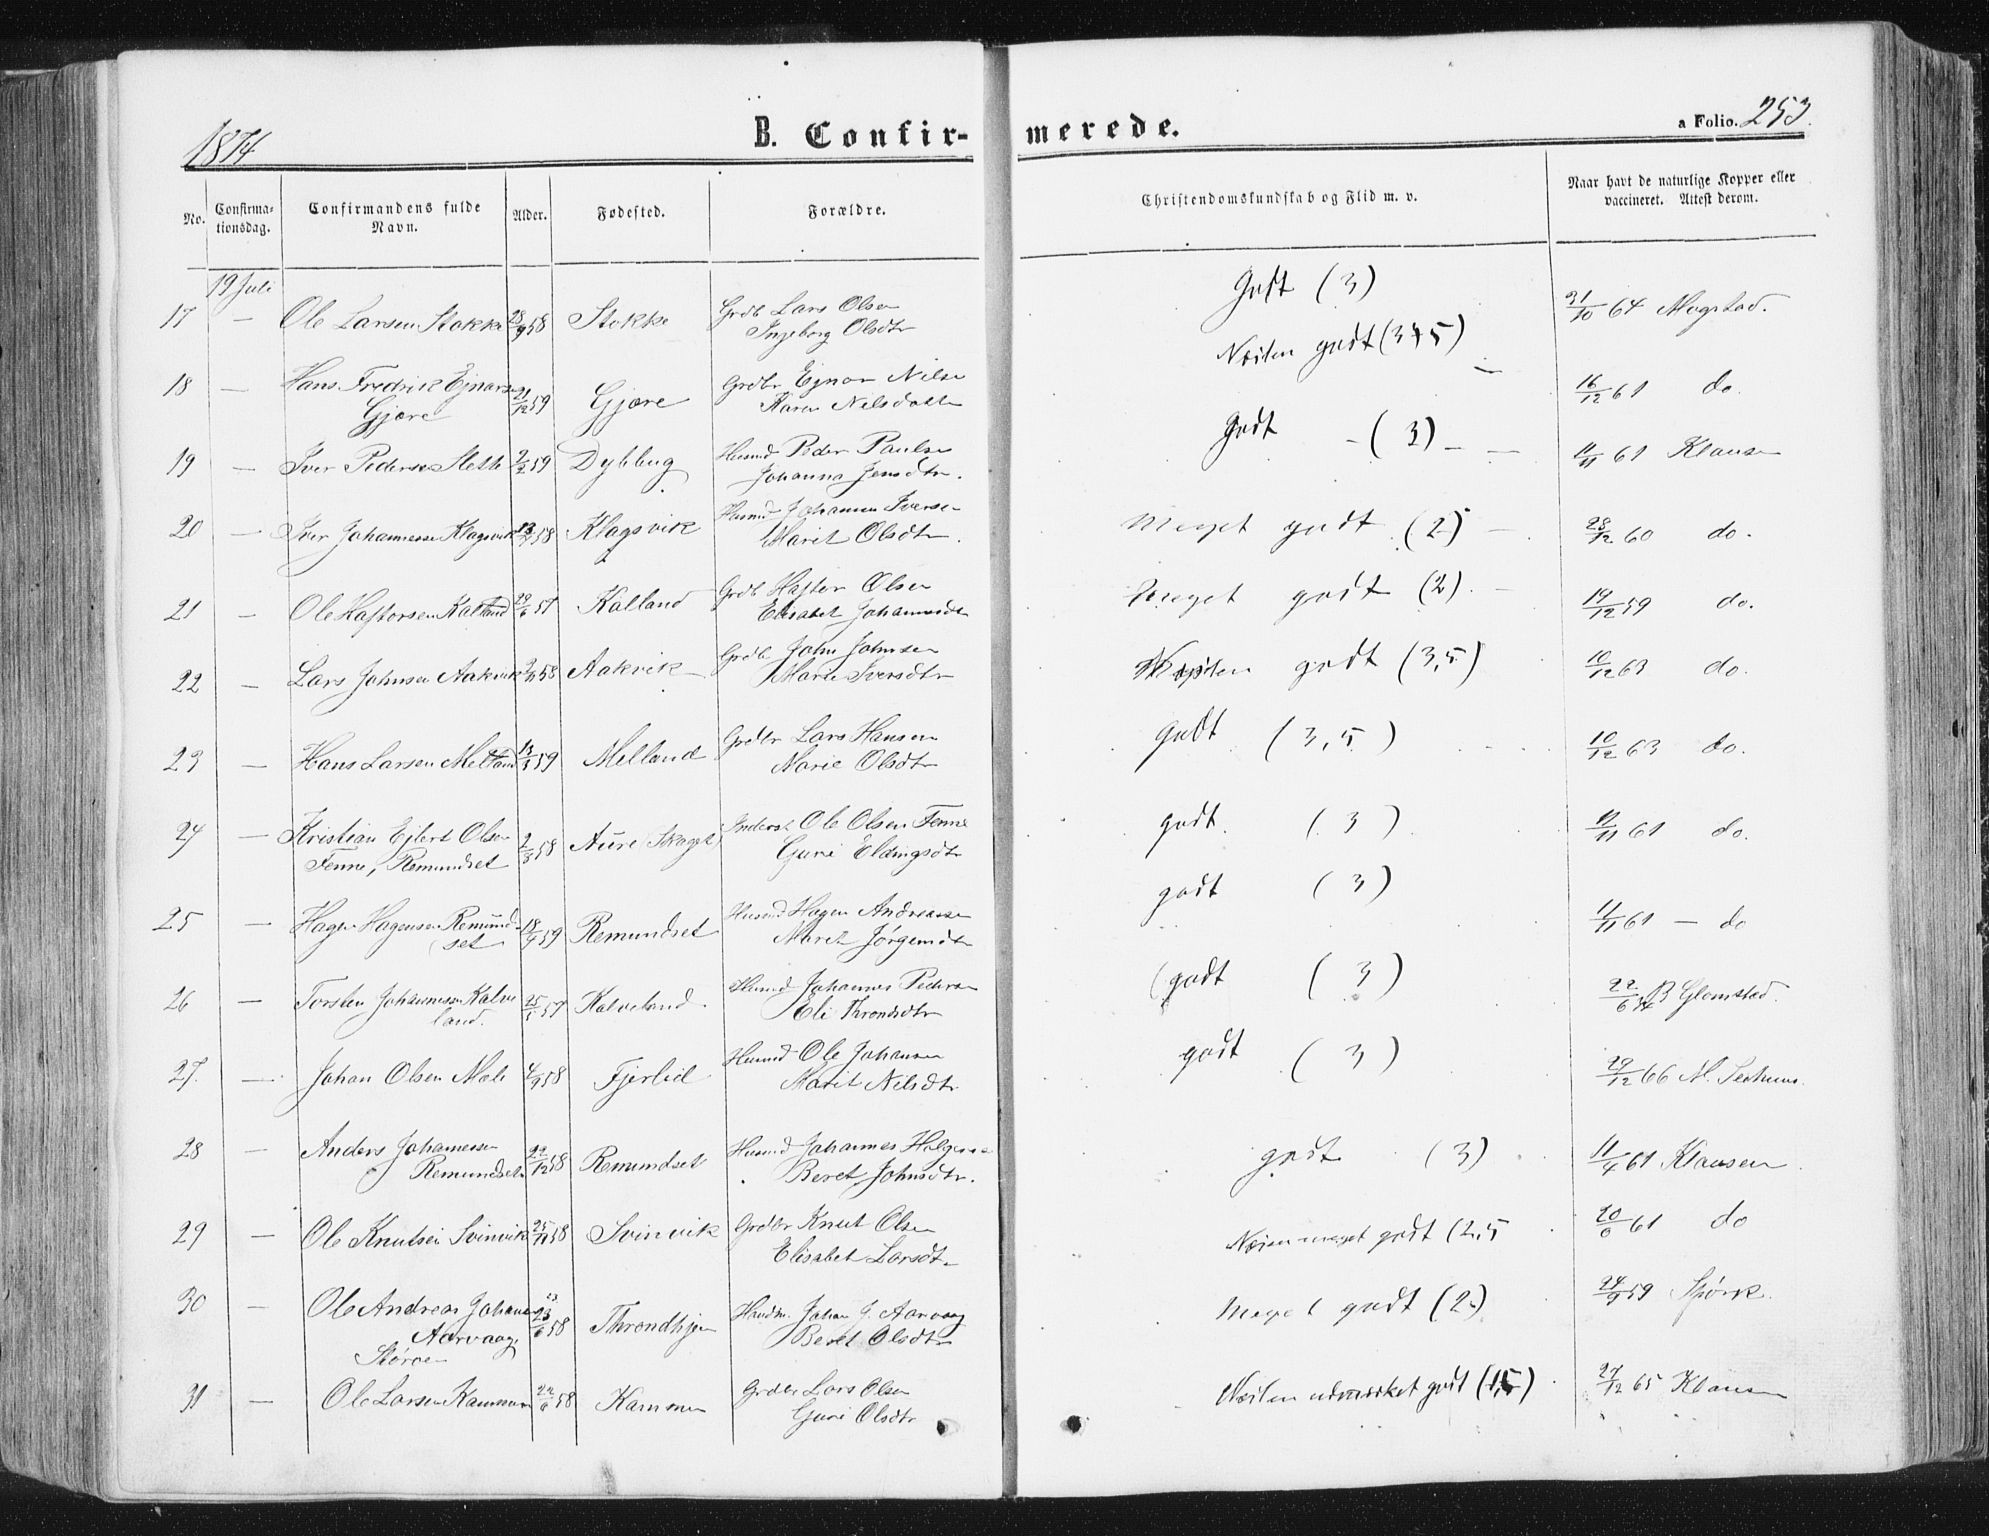 1874
B. Confir-
merede.
a Folio. 253.
No.
Confirma-
tionsdag.
Confirmandens fulde
Navn.
Alder.
Fødested.
Forældre.
Christendomskundskab og Flid m. v.
Naar havt de naturlige Kopper eller
vaccineret. Attest derom.
19 Juli
17 — Ole Larsen Stokke 28/9 58 Stokke Grdb Lars Olsen
Ingeborg Olsdtr
Godt (3)
21/10 64 Mogstad.
18 — Hans Fredrik Ejnarsen
Gjøre 21/12 59 Gjøre Grdbr Ejnar Nilsen
Karen Nilsdatter
Næsten godt (3,5)
16/12 61 do.
19 — Iver Pedersen Sletten 2/2 59 Dybbug Husmd Peder Paulsen
Johanna Jensdtr.
Godt (3)
11/11 61 Klausen
20 — Iver Johannessen Klagsvik 58 Klagsvik Husmd Johannes Iversen
Marit Olsdtr.
Meget godt (2)
28/12 60 do.
21 — Ole Haftorsen Kalland 57 Kalland Grdb Haftor Olsen
Elisabet Johannesdtr
Meget godt (2)
19/12 59 do.
22 — Lars Johnsen Aakvik 58 Aakvik Grdb John Johnsen
Marie Iversdtr
Næsten godt (3,5)
10/12 63 do.
23 — Hans Larsen Melland 13/3 59 Melland Grdbr Lars Hansen
Marie Olsdtr
godt (3,5)
10/12 63 do.
24 — Kristian Ejlert Olsen
Fenne, Remundset 2/3 58 Aure Inderst Ole Olsen Fenne
Guri Eldingsdtr
godt (3)
11/11 61 do.
25 — Hagen Hagensen Remund-
set 18/4 59 Remundset Husmd Hagen Andreassen
Maret Jørgensdtr
godt (3)
11/11 61 — do
26 — Torsten Johannessen Kalve
land. 25/5 57 Kalveland Husmd Johannes Pedersen
Eli Throndsdtr
godt (3)
22/6 B Glomstad.
27. — Johan Olsen Mele 4/9 58 Fjerlid Husmd Ole Johansen
Marit Nilsdtr
godt (3)
29/12 66
28 — Anders Johannessen
Remundset 22/12 58 Remundset Husmd Johannes Holgersen
Beret Johnsdtr.
godt (3)
11/4 61 Klausen
29 — Ole Knutsen Svinvik 25/11 58 Svinvik Grdbr Knut Olsen
Elisabet Larsdtr
Næsten meget godt (2,5
20/6 61 do
30 — Ole Andreas Johansen
Aarvaag,
Støroen 23/6 58 Throndhjem Handm. Johan J. Aarvaag
Beret Olsdtr
Meget godt (2)
24/9 59 Spørk.
31 — Ole Larsen Kammen 22/6 58 Kammen Grdbr Lars Olsen
Guri Olsdtr
Næsten udmærket godt (1,5)
27/12 65 Klausen